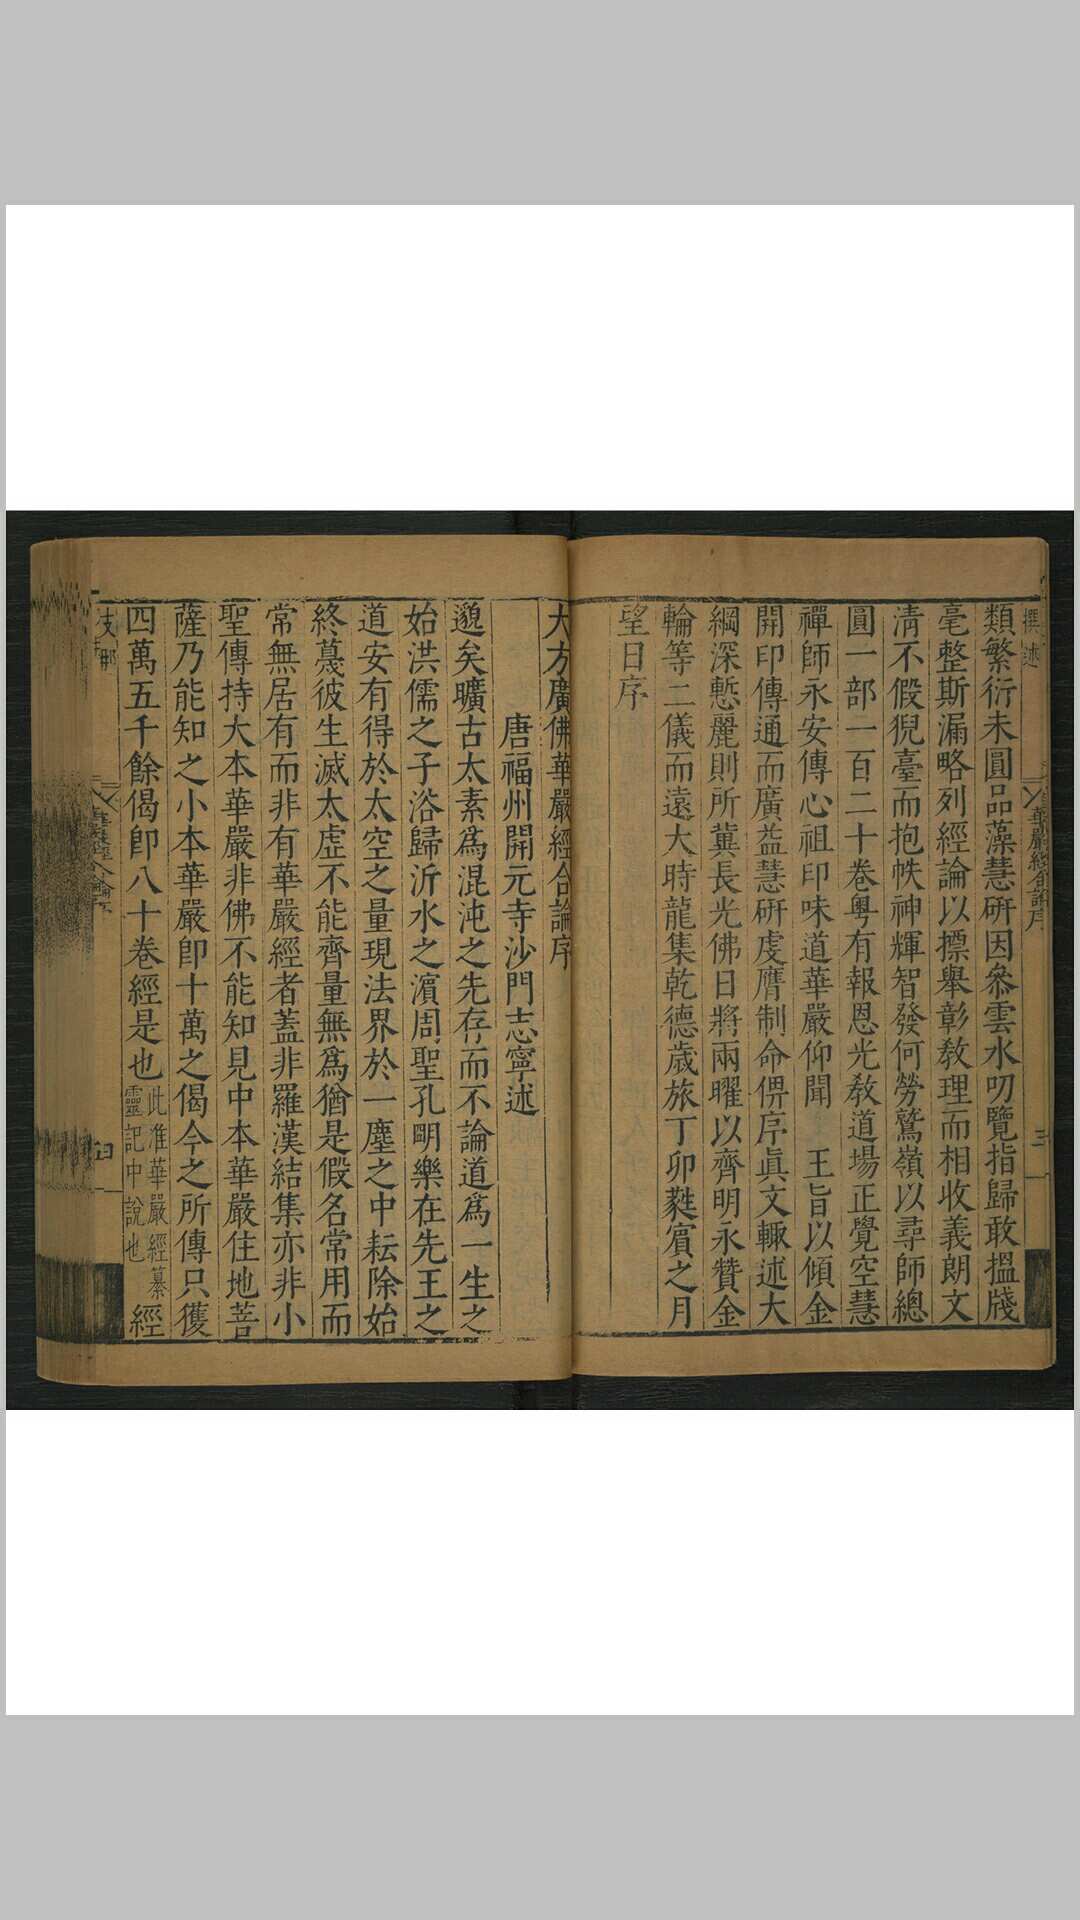 撰述
華嚴經合論序
三
類繁衍未圓品藻慧研因叅雲水叨覽指歸敢搵牋
毫整斯漏略列經論以摽舉彰教理而相收義朗文
清不假猊臺而抱帙神輝智發何勞鷲嶺以尋師總
圓一部一百二十卷粤有報恩光教道場正覺空慧
禪師永安傳心祖印味道華嚴仰聞 王旨以傾金
開印傳通而廣益慧研虔膺制命俾序眞文輙述大
綱深慙麗則所冀長光佛日將兩曜以齊明永贊金
輪等二儀而遠大時龍集乾德歲旅丁卯蕤賓之月
望日序
大方廣佛華嚴經合論序
唐福州開元寺沙門志寧述
邈矣曠古太素爲混沌之先存而不論道爲一生之
始洪儒之子浴歸沂水之濵周聖孔朙樂在先王之
道安有得於太空之量現法界於一塵之中耘除始
終蔑彼生滅太虛不能齊量無爲猶是假名常用而
常無居有而非有華嚴經者蓋非羅漢結集亦非小
聖傳持大本華嚴非佛不能知見中本華嚴住地菩
薩乃能知之小本華嚴卽十萬之偈今之所傳只獲
四萬五千餘偈卽八十卷經是也此准華嚴經纂靈記中說也經
支那